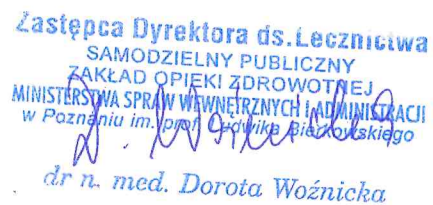 Zastępca Dyrektora ds. Lecznictwa
SAMODZIELNY PUBLICZNY
ZAKŁAD OPIEKI ZDROWOTNEJ
MINISTERSTWA SPRAW WEWNĘTRZNYCH i ADMINISTRACJI
w Poznaniu im. prof. Ludwika Bierkowskiego
D. Woźnicka
dr n. med. Dorota Woźnicka